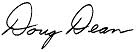 Doug Dean